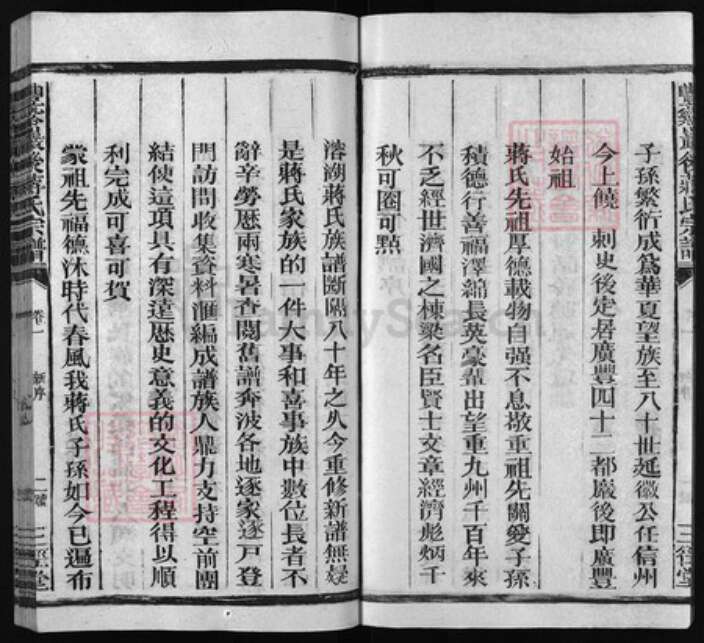 子孫繁衍成爲華夏望族至八十世延徽公任信州
今上饒 刺史後定居廣豐四十二都巖後即廣豐
始祖
蔣氏先祖厚德載物自强不息敬重祖先關愛子孫
積德行善福澤綿長英豪輩出望重九州千百年來
不乏經世濟國之棟梁名臣賢士文章經濟彪炳千
秋可圈可點
溶湖蔣氏族譜斷隔八十年之久今重修新譜無疑
是蔣氏家族的一件大事和喜事族中數位長者不
辭辛勞歷兩寒暑查閱舊譜奔波各地逐家逐戸登
門訪問收集資料滙編成譜族人鼎力支持空前團
結使這項具有深遠歷史意義的文化工程得以順
利完成可喜可賀
蒙祖先福德沐時代春風我蔣氏子孫如今已遍布
巖後蔣氏宗譜
卷一
新序
二
三徑堂
巖後蔣氏宗譜
三徑堂
FamilySearch